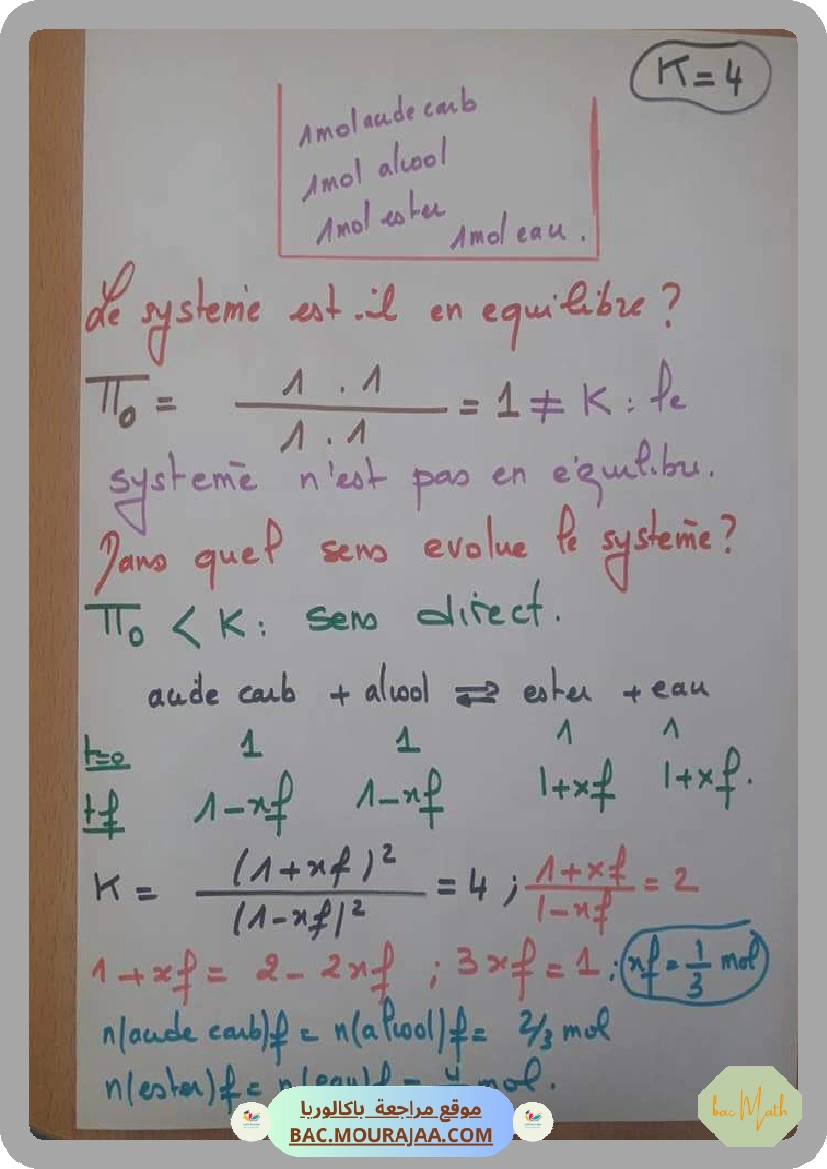 K = 4
1mol acide carb
1mol alcool
1mol ester
1mol eau.
Le systeme est-il en equilibre ?
π₀ = (1 . 1)/(1 . 1) = 1 ≠ K : le
systeme n'est pas en équilibre.
Dans quel sens evolue le systeme ?
π₀ < K : sens direct.
acide carb + alcool ⇌ ester + eau
t=0 1 1 1 1
tf 1-xf 1-xf 1+xf 1+xf.
K = (1+xf)²/(1-xf)² = 4 ; (1+xf)/(1-xf) = 2
1+xf = 2-2xf ; 3xf = 1 ; xf = 1/3 mol
n(acide carb)f = n(alcool)f = 2/3 mol
n(ester)f = n(eau)f = 4 mol.
موقع مراجعة باكالوريا
BAC.MOURAJAA.COM
bac Math